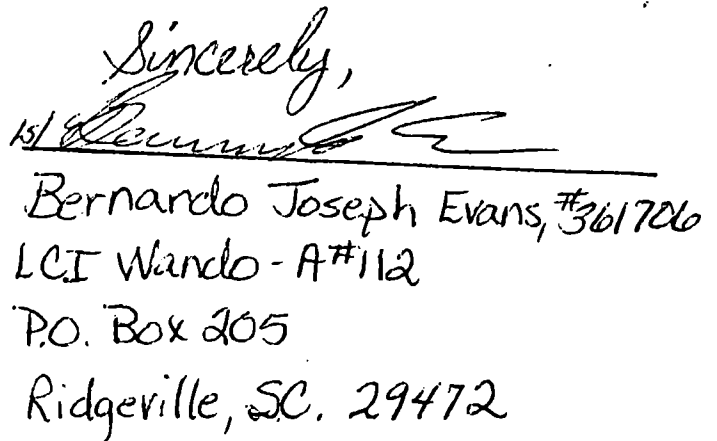 Sincerely,
/s/
Bernardo Joseph Evans, #361706
LCI Wando - A#112
P.O. Box 205
Ridgeville, SC. 29472